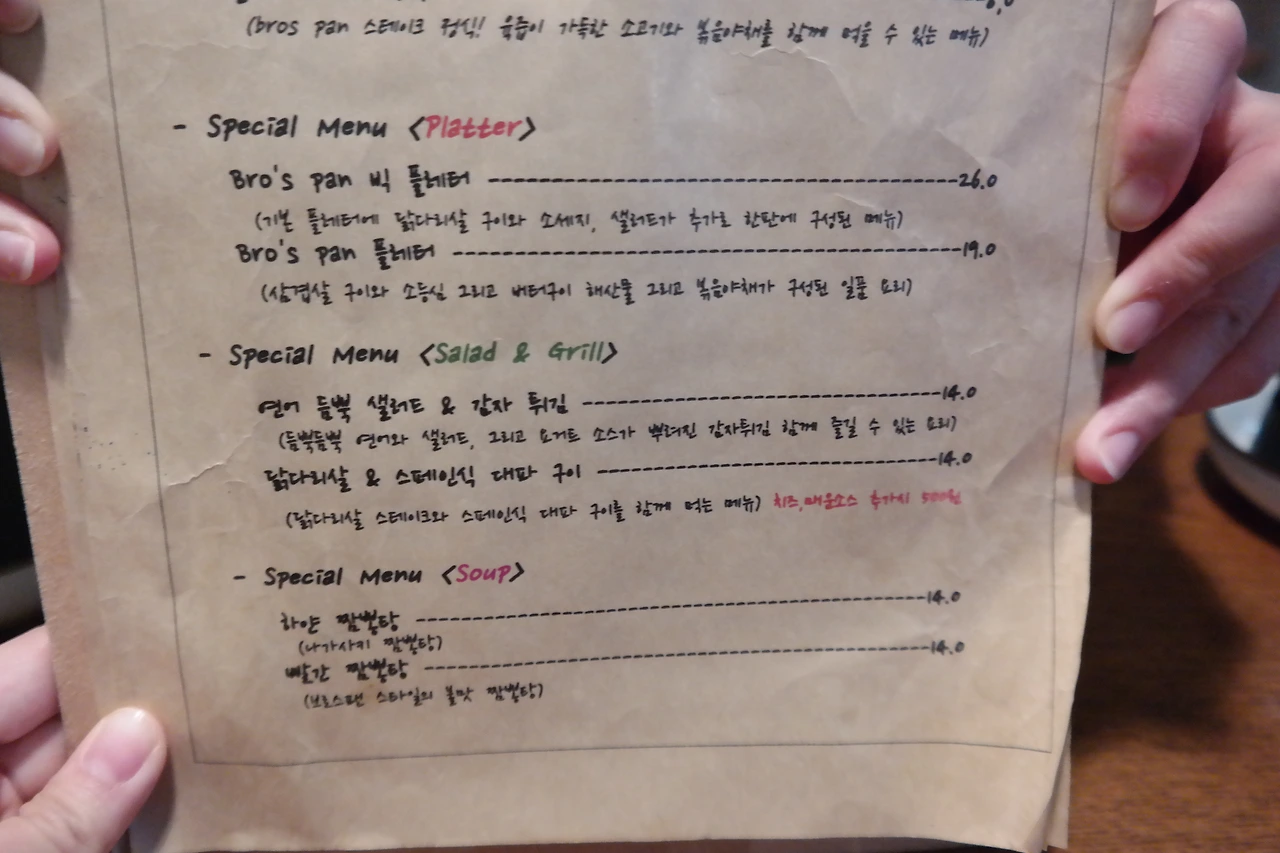 (bros pan 스테이크 정식! 육즙이 가득한 소고기와 볶음야채를 함께 먹을 수 있는 메뉴)
- Special Menu <Platter>
Bro's pan 빅 플레터 ------------------------------------------26.0
(기본 플레터에 닭다리살 구이와 소세지, 샐러드가 추가로 한판에 구성된 메뉴)
Bro's pan 플레터 ---------------------------------------------19.0
(삼겹살 구이와 소등심 그리고 버터구이 해산물 그리고 볶음야채가 구성된 일품 요리)
- Special Menu <Salad & Grill>
연어 듬뿍 샐러드 & 감자 튀김 --------------------------------14.0
(듬뿍듬뿍 연어와 샐러드, 그리고 요거트 소스가 뿌려진 감자튀김 함께 즐길 수 있는 요리)
닭다리살 & 스페인식 대파 구이 ------------------------------14.0
(닭다리살 스테이크와 스페인식 대파 구이를 함께 먹는 메뉴) 치즈,매운소스 추가시 500원
- Special Menu <Soup>
하얀 짬뽕탕 ---------------------------------------------14.0
(나가사키 짬뽕탕)
빨간 짬뽕탕 --------------------------------------------14.0
(브로스팬 스타일의 불맛 짬뽕탕)